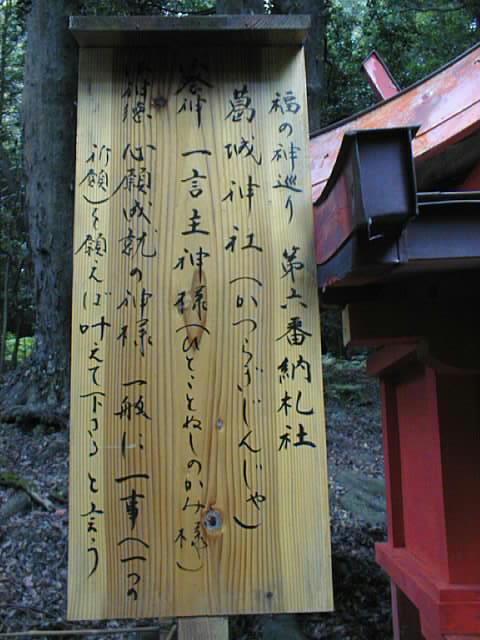 福の神巡り 第六番納札社
葛城神社(かつらぎじんじゃ)
祭神 一言主神様(ひとことぬしのかみ様)
御神徳 心願成就の神様 一般に一事(一つの
祈願)を願えば叶えて下さると言う